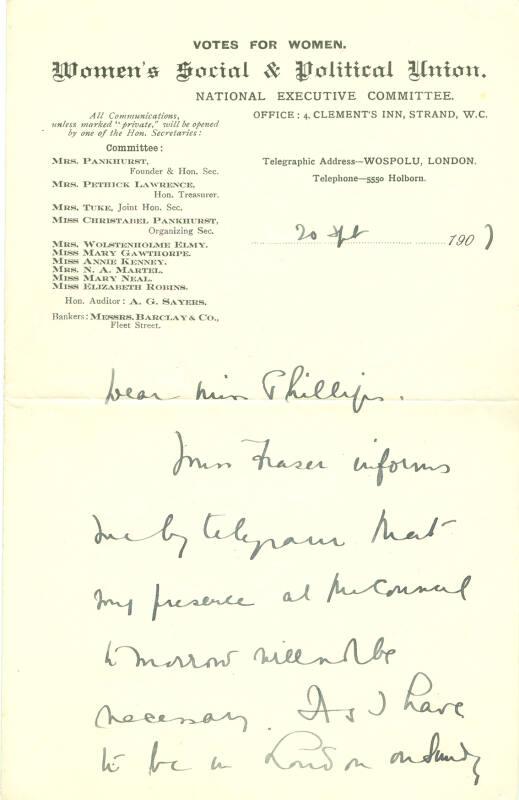 VOTES FOR WOMEN.
Women's Social & Political Union.
NATIONAL EXECUTIVE COMMITTEE.
All Communications,
unless marked "private," will be opened
by one of the Hon. Secretaries:
OFFICE: 4, CLEMENT'S INN, STRAND, W.C.
Committee:
MRS. PANKHURST,
Founder & Hon. Sec.
MRS. PETHICK LAWRENCE,
Hon. Treasurer.
MRS. TUKE, Joint Hon. Sec.
MISS CHRISTABEL PANKHURST,
Organizing Sec.
MRS. WOLSTENHOLME ELMY.
MISS MARY GAWTHORPE.
MISS ANNIE KENNEY.
MRS. N. A. MARTEL.
MISS MARY NEAL.
MISS ELIZABETH ROBINS.
Hon. Auditor: A. G. SAYERS.
Bankers: MESSRS. BARCLAY & CO.,
Fleet Street.
Telegraphic Address—WOSPOLU, LONDON.
Telephone—5550 Holborn.
20 Sept 1907
Dear Miss Phillips.
Miss Fraser informs
me by telegram that
my presence at the Council
to morrow will not be
necessary. As I have
to be in London on Sunday